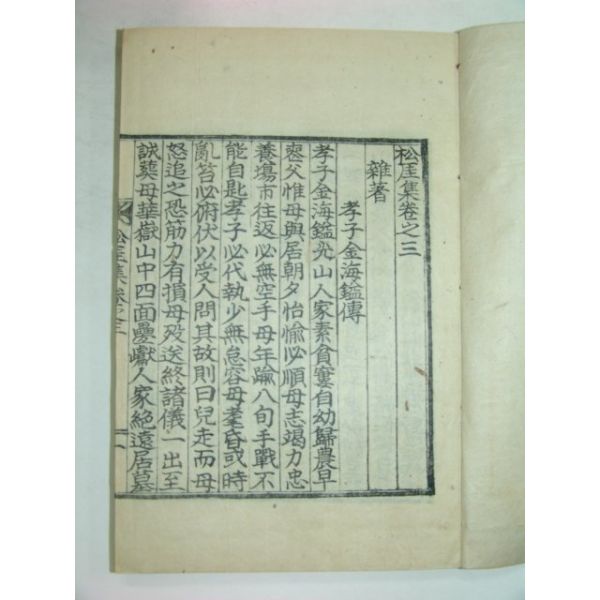 松厓集卷之三
雜著
孝子金海鎰傳
孝子金海鎰光山人家素貧寠自幼歸農早
喪父惟母與居朝夕怡愉必順母志竭力忠
養場市往返必無空手母年踰八旬手戰不
能自匙孝子必代執少無怠容母耄昏或時
亂笞必俯伏以受人問其故則曰兒走而母
怒追之恐筋力有損母歿送終諸儀一出至
誠葬母華嶽山中四面疊巘人家絶遠居墓
松厓集卷之三
一